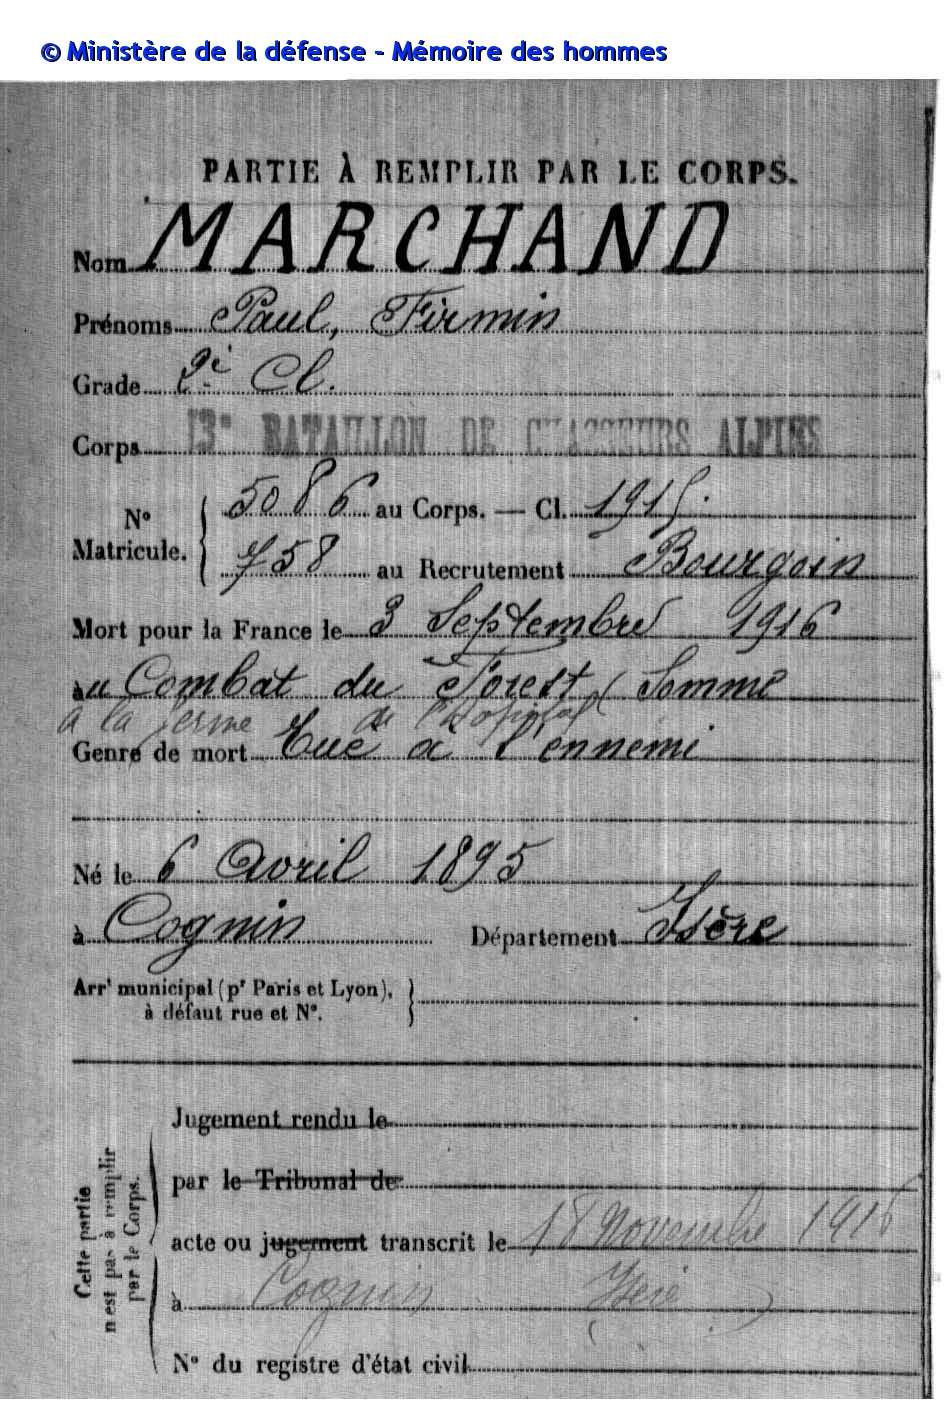 © Ministère de la défense - Mémoire des hommes
PARTIE À REMPLIR PAR LE CORPS.
Nom MARCHAND
Prénoms Paul, Firmin
Grade 2e Cl.
Corps 13e BATAILLON DE CHASSEURS ALPINS
No Matricule. { 5086 au Corps. — Cl. 1915.
758 au Recrutement Bourgoin
Mort pour la France le 3 Septembre 1916
au Combat du Forest (Somme
à la ferme de l'hopital
Genre de mort Tué à l'ennemi
Né le 6 Avril 1895
à Cognin Département Isère
Arrt municipal (pr Paris et Lyon), }
à défaut rue et No.
Cette partie n'est pas à remplir par le Corps.
Jugement rendu le
par le Tribunal de
acte ou jugement transcrit le 18 Novembre 1916
à Cognin Isère
No du registre d'état civil